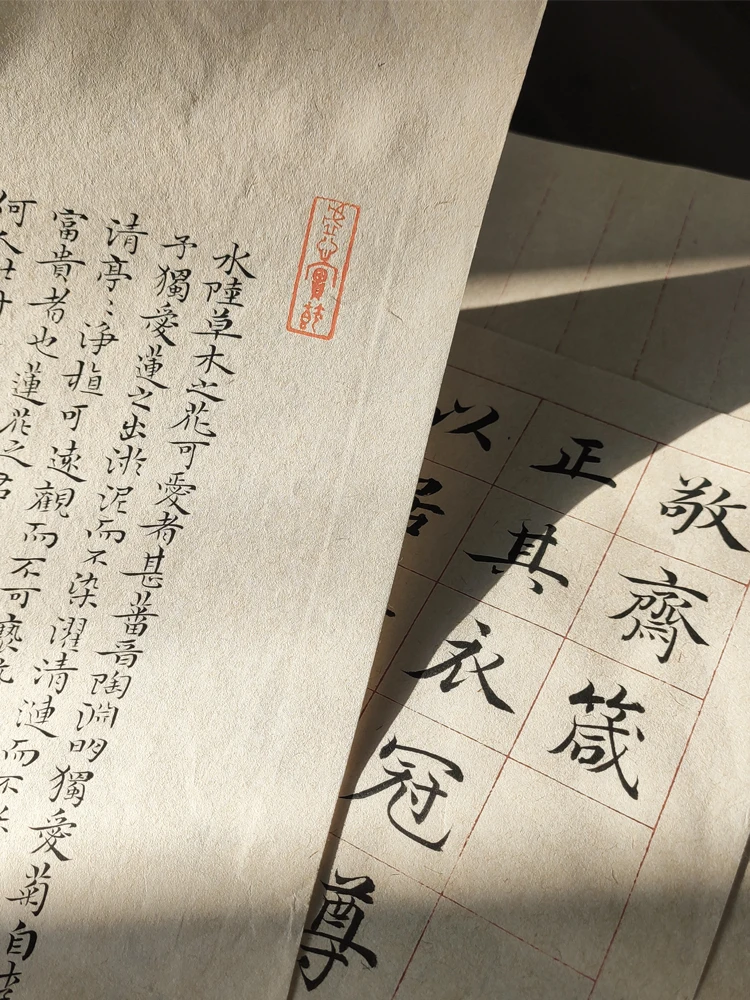 水陸草木之花可愛者甚蕃晉陶淵明獨愛菊自
予獨愛蓮之出淤泥而不染濯清漣而不
清亭〻淨植可遠觀而不可褻玩
富貴者也蓮花之君
何人
敬齋箴
正其衣冠尊
以居